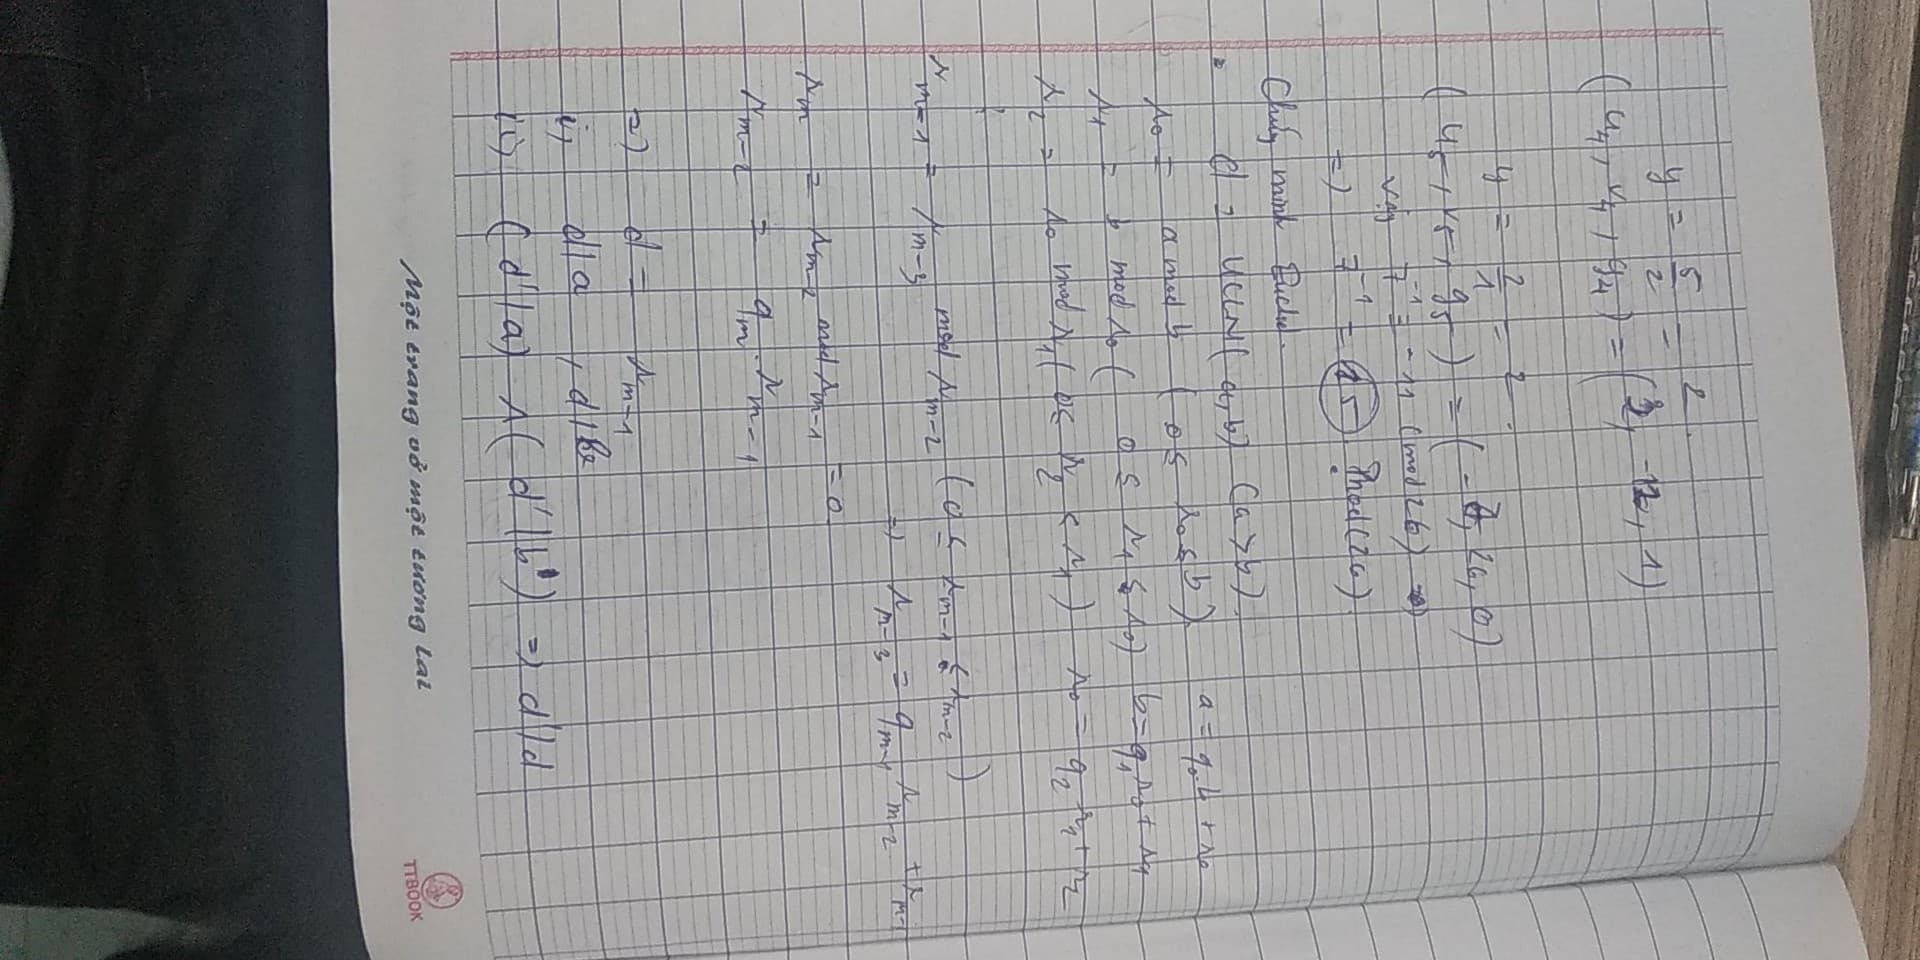 y = 5/2 = 2.
(u₄, v₄, g₄) = (3, -12, 1)
y = 2/1 = 2.
(u₅, v₅, g₅) = (-7, 26, 0)
vậy 7⁻¹ = -11 (mod 26) =>
=> 7⁻¹ = 15 mod(26)
Chứng minh Euclid.
d = UCLN(a, b) (a > b)
r₀ = a mod b (0 ≤ r₀ ≤ b) a = q₀.b + r₀
r₁ = b mod r₀ (0 ≤ r₁ ≤ r₀) b = q₁r₀ + r₁
r₂ = r₀ mod r₁ (0 ≤ r₂ < r₁) r₀ = q₂ r₁ + r₂
⋮
r_{m-1} = r_{m-3} mod r_{m-2} (0 ≤ r_{m-1} ≤ r_{m-2})
=> r_{m-3} = q_{m-1} r_{m-2} + r_{m-1}
r_m = r_{m-2} mod r_{m-1} = 0
r_{m-2} = q_m . r_{m-1}
=> d = r_{m-1}
i, d|a , d|b
ii) (d'|a) ∧ (d'|b) => d'|d
Một trang vở một tương lai
TTBOOK